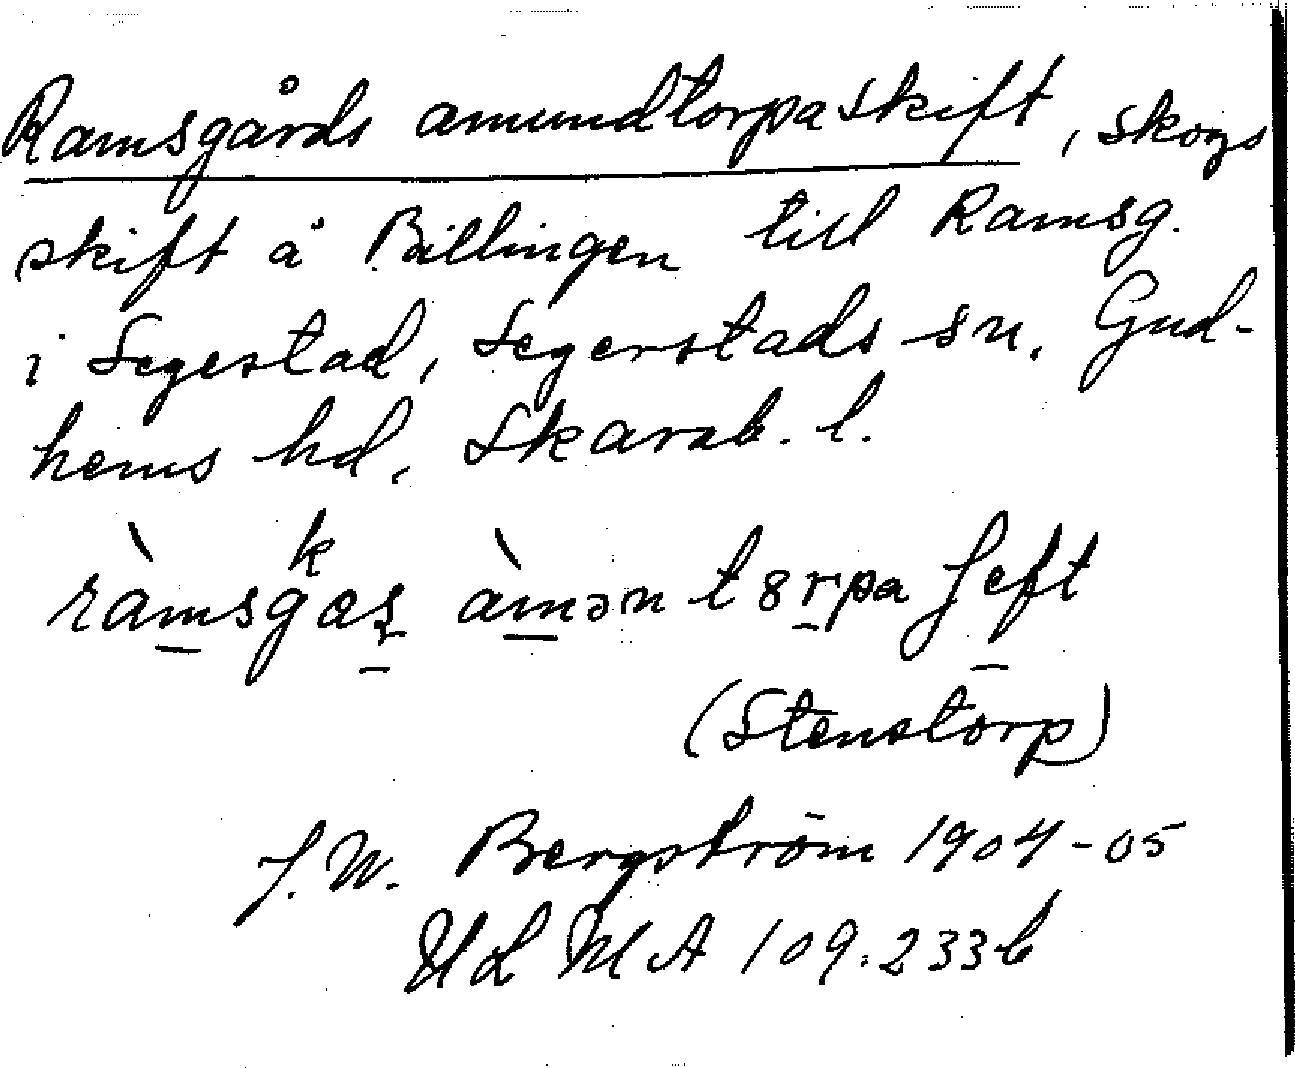 Ramsgårds amundtorpaskift, skogs
skift å Billingen till Ramsg.
i Segestad, Segerstads sn, Gud-
hems hd, Skarab. l.
k
ràmsgas àmən t8rpa ʃeft
(Stenstorp)
J. W. Bergström 1904-05
ULMA 109:233b